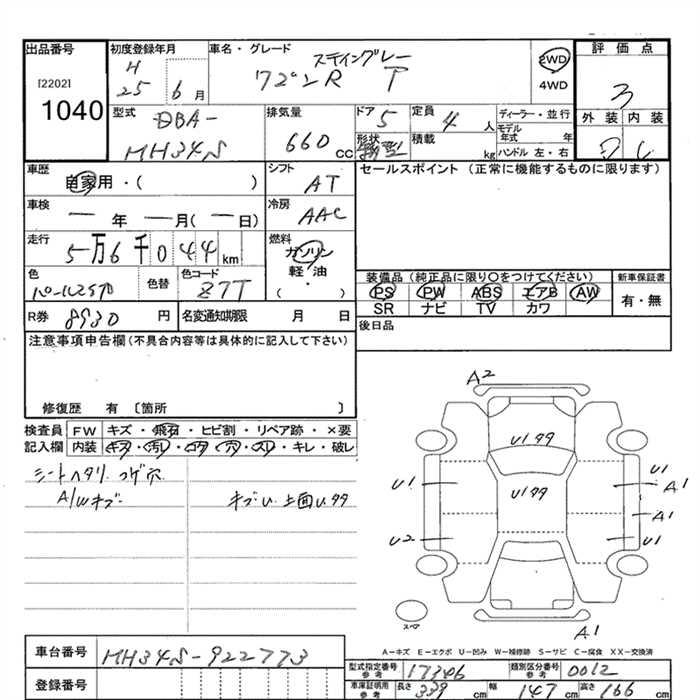 出品番号 初度登録年月 車名・グレード 評価点
[2202] 1040
H 25 6月
スティングレー
ワゴンR T
2WD
4WD
3
外装 内装
型式 排気量 ドア 定員 ディーラー・並行
DBA-
MH34S
660 cc
5
4 人
モデル年式 年
形状 積載 kg ハンドル 左・右
車歴 シフト セールスポイント (正常に機能するものに限ります)
自家用・( ) AT
車検 冷房
ー年ー月(ー日) AAC
走行 燃料
5万6千044km ガソリン
軽・油
( )
色 色替 色コード
パールスミアカ Z7T
装備品(純正品に限り○をつけてください) 新車保証書
PS PW ABS エアB AW 有・無
SR ナビ TV カワ
R券 8930円 名変通知期限 月 日
後日品
注意事項申告欄(不具合内容等は具体的に記入して下さい)
修復歴 有 〔箇所 〕
検査員記入欄 FW キズ・飛石・ヒビ割・リペア跡・×要
内装 キズ・汚レ・コゲ・穴・スレ・キレ・破レ
シートヘタリ コゲ穴
A/Wキズ
キズU 上面Uササ
A2
Uササ
U1
Uササ
U1
A1
A1
U2
U1
スペア
A1
A-キズ E-エクボ U-凹み W-補修跡 S-サビ C-腐食 XX-交換済
車台番号 MH34S-922773
登録番号
型式指定番号 参考 17346 類別区分番号 参考 0012
車庫証明用 参考 長さ 339 cm 幅 147 cm 高さ 166 cm